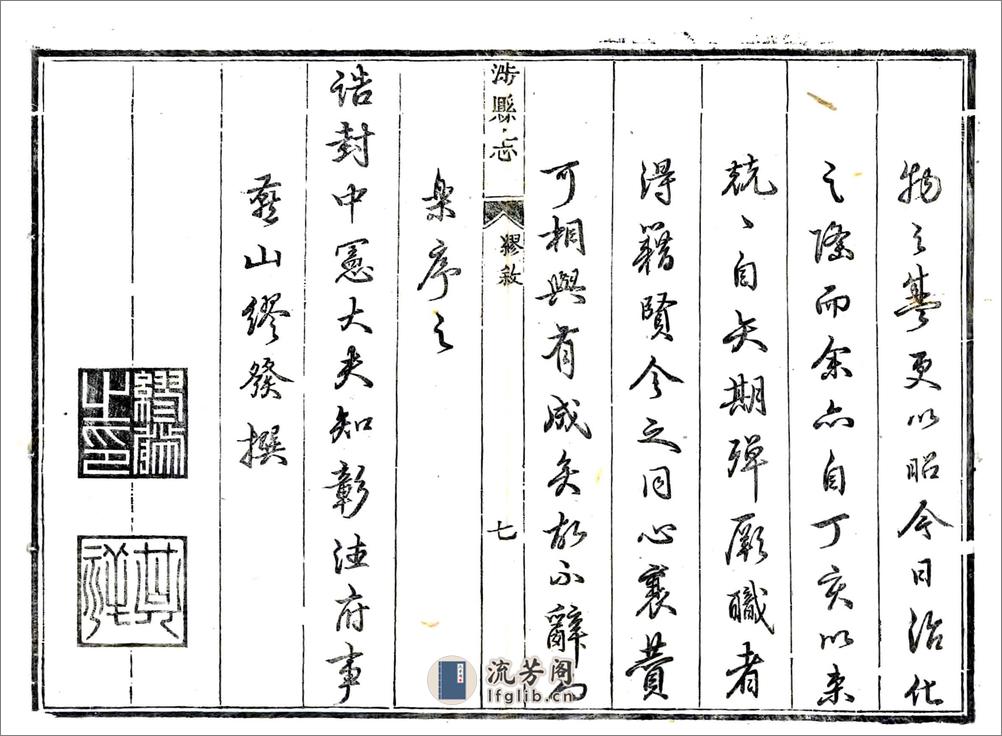 物之更以昭今日治化
之隆而余亦自丁亥以来
兢〻自矢期殫厥職者
得籍賢令之同心襄賛
可相與有成矣故不辭而
涉縣志 繆敘 七
樂序之
誥封中憲大夫知彰德府事
燕山繆發撰
其祥
流芳阁
lfglib.cn